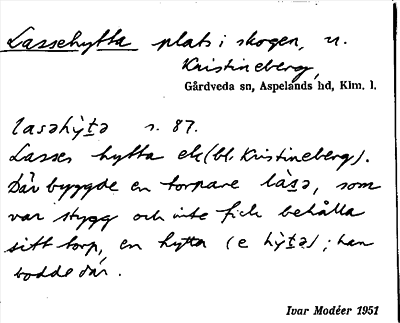 Lassehytta plats i skogen, n.
Kristineberg,
Gårdveda sn, Aspelands hd, Klm. l.
lasəhỳt̠ə s. 87.
Lasses hytta ek (bl. Kristineberg).
Där byggde en torpare làs̠ə, som
var stygg och inte fick behålla
sitt torp, en hytta (e hỳt̠ə); han
bodde där.
Ivar Modéer 1951